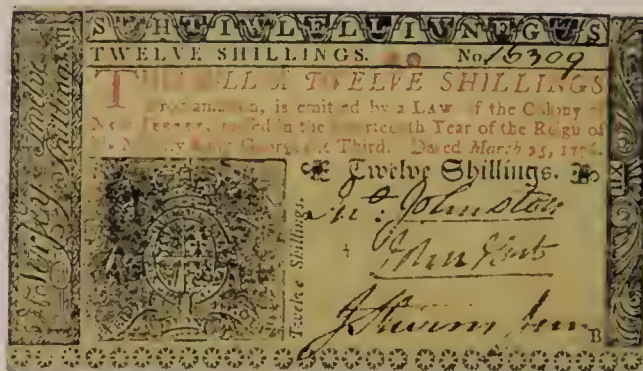 TWELVE SHILLINGS. No. 16309
BILL of TWELVE SHILLINGS
Proclamation, is emitted by a Law of the Colony of
New Jersey, passed in the Fourteenth Year of the Reign of
his Majesty King George the Third. Dated March 25, 1776.
Twelve Shillings.
Johnston
John
B
Jersey Twelve
Shillings XII
Twelve Shillings.
XII